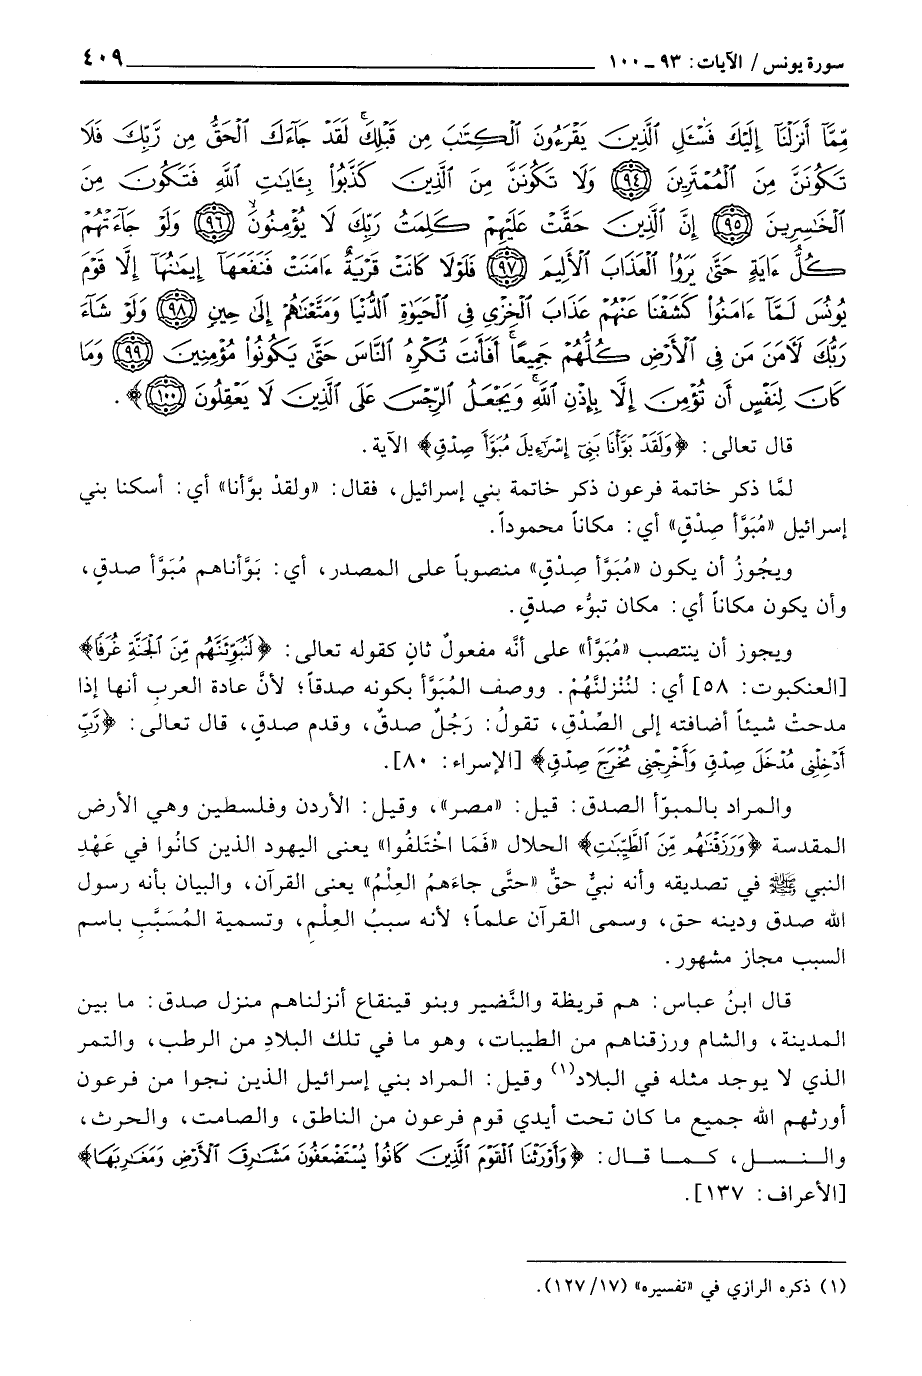 سورة يونس / الآيات: ٩٣ ـ ١٠٠ ٤٠٩
مِّمَّآ أَنزَلْنَآ إِلَيْكَ فَسْـَٔلِ ٱلَّذِينَ يَقْرَءُونَ ٱلْكِتَٰبَ مِن قَبْلِكَ ۚ لَقَدْ جَآءَكَ ٱلْحَقُّ مِن رَّبِّكَ فَلَا
تَكُونَنَّ مِنَ ٱلْمُمْتَرِينَ (٩٤) وَلَا تَكُونَنَّ مِنَ ٱلَّذِينَ كَذَّبُوا۟ بِـَٔايَٰتِ ٱللَّهِ فَتَكُونَ مِنَ
ٱلْخَٰسِرِينَ (٩٥) إِنَّ ٱلَّذِينَ حَقَّتْ عَلَيْهِمْ كَلِمَتُ رَبِّكَ لَا يُؤْمِنُونَ ۙ (٩٦) وَلَوْ جَآءَتْهُمْ
كُلُّ ءَايَةٍ حَتَّىٰ يَرَوُا۟ ٱلْعَذَابَ ٱلْأَلِيمَ (٩٧) فَلَوْلَا كَانَتْ قَرْيَةٌ ءَامَنَتْ فَنَفَعَهَآ إِيمَٰنُهَآ إِلَّا قَوْمَ
يُونُسَ لَمَّآ ءَامَنُوا۟ كَشَفْنَا عَنْهُمْ عَذَابَ ٱلْخِزْىِ فِى ٱلْحَيَوٰةِ ٱلدُّنْيَا وَمَتَّعْنَٰهُمْ إِلَىٰ حِينٍ (٩٨) وَلَوْ شَآءَ
رَبُّكَ لَـَٔامَنَ مَن فِى ٱلْأَرْضِ كُلُّهُمْ جَمِيعًا ۚ أَفَأَنتَ تُكْرِهُ ٱلنَّاسَ حَتَّىٰ يَكُونُوا۟ مُؤْمِنِينَ (٩٩) وَمَا
كَانَ لِنَفْسٍ أَن تُؤْمِنَ إِلَّا بِإِذْنِ ٱللَّهِ ۚ وَيَجْعَلُ ٱلرِّجْسَ عَلَى ٱلَّذِينَ لَا يَعْقِلُونَ (١٠٠)﴾.
قال تعالى: ﴿وَلَقَدْ بَوَّأْنَا بَنِىٓ إِسْرَٰٓءِيلَ مُبَوَّأَ صِدْقٍ﴾ الآية.
لمَّا ذكر خاتمة فرعون ذكر خاتمة بني إسرائيل، فقال: «ولقدْ بوَّأنا» أي: أسكنا بني
إسرائيل «مُبَوَّأ صِدْقٍ» أي: مكاناً محموداً.
ويجُوزُ أن يكون «مُبَوَّأ صِدْقٍ» منصوباً على المصدر، أي: بَوَّأناهم مُبَوَّأ صدقٍ،
وأن يكون مكاناً أي: مكان تبوُّء صدقٍ.
ويجوز أن ينتصب «مُبَوَّأ» على أنَّه مفعولٌ ثانٍ كقوله تعالى: ﴿لَنُبَوِّئَنَّهُم مِّنَ ٱلْجَنَّةِ غُرَفًا﴾
[العنكبوت: ٥٨] أي: لنُنْزلنَّهُمْ. ووصف المُبَوَّأ بكونه صدقاً؛ لأنَّ عادة العربِ أنها إذا
مدحتْ شيئاً أضافته إلى الصِّدْقِ، تقولُ: رَجُلٌ صدقٌ، وقدم صدقٍ، قال تعالى: ﴿رَّبِّ
أَدْخِلْنِى مُدْخَلَ صِدْقٍ وَأَخْرِجْنِى مُخْرَجَ صِدْقٍ﴾ [الإسراء: ٨٠].
والمراد بالمبوّأ الصدق: قيل: «مصر»، وقيل: الأردن وفلسطين وهي الأرض
المقدسة ﴿وَرَزَقْنَٰهُم مِّنَ ٱلطَّيِّبَٰتِ﴾ الحلال «فَمَا اخْتَلفُوا» يعنى اليهود الذين كانُوا في عَهْدِ
النبي ﷺ في تصديقه وأنه نبيٌّ حقٌّ «حتَّى جاءَهمُ العِلْمُ» يعنى القرآن، والبيان بأنه رسول
الله صدق ودينه حق، وسمى القرآن علماً؛ لأنه سببُ العِلْمِ، وتسمية المُسَبَّبِ باسم
السبب مجاز مشهور.
قال ابنُ عباس: هم قريظة والنَّضير وبنو قينقاع أنزلناهم منزل صدق: ما بين
المدينة، والشام ورزقناهم من الطيبات، وهو ما في تلك البلادِ من الرطب، والتمر
الذي لا يوجد مثله في البلاد(١) وقيل: المراد بني إسرائيل الذين نجوا من فرعون
أورثهم الله جميع ما كان تحت أيدي قوم فرعون من الناطق، والصامت، والحرث،
والنسل، كما قال: ﴿وَأَوْرَثْنَا ٱلْقَوْمَ ٱلَّذِينَ كَانُوا۟ يُسْتَضْعَفُونَ مَشَٰرِقَ ٱلْأَرْضِ وَمَغَٰرِبَهَا﴾
[الأعراف: ١٣٧].
(١) ذكره الرازي في «تفسيره» (١٧/ ١٢٧).